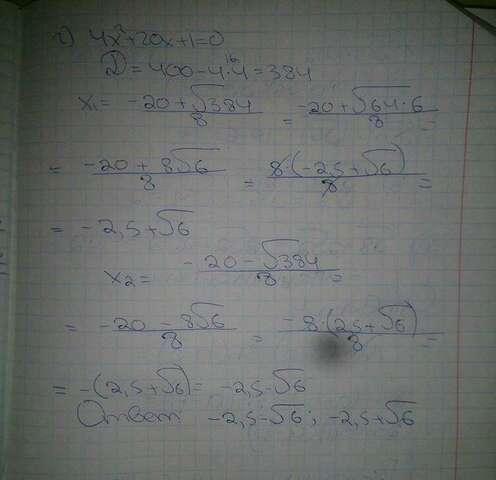 г) 4x²+20x+1=0
D=400-4·4=384
16
x₁= -20+√384/8 = -20+√64·6/8 =
= -20+8√6/8 = 8·(-2,5+√6)/8 =
= -2,5+√6
x₂= -20-√384/8 =
= -20-8√6/8 = -8·(2,5+√6)/8 =
= -(2,5+√6)= -2,5-√6
Ответ -2,5-√6; -2,5+√6